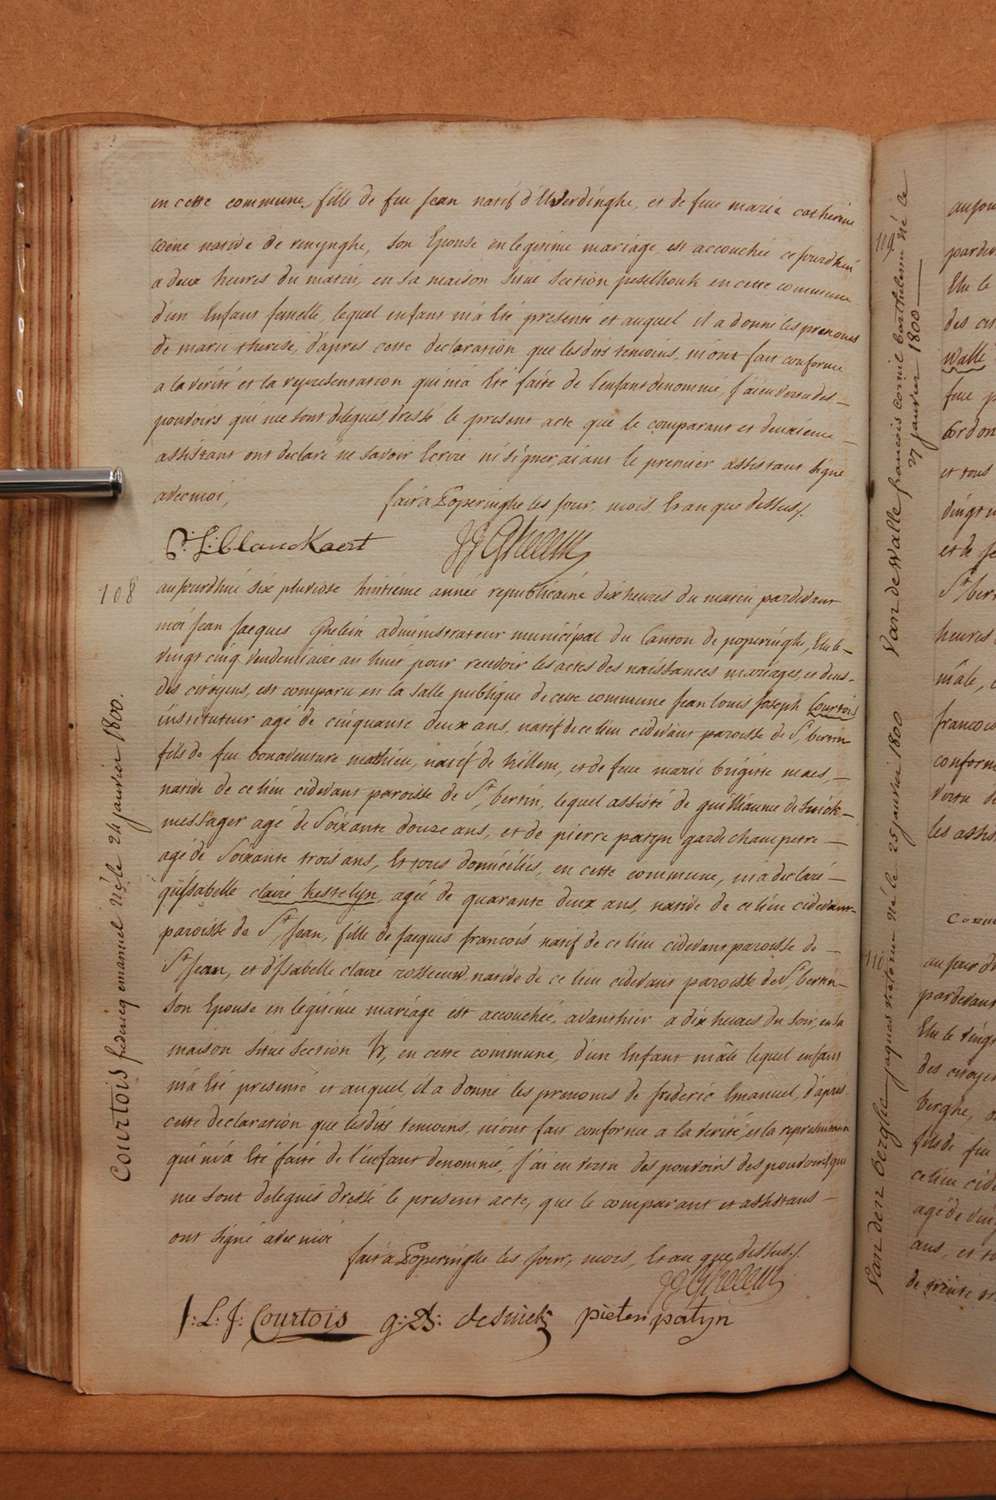 en cette commune, fille de feu Jean natif d'Elverdinghe, et de feue marie catherine
coene native de reninghe, son Epouse en legitime mariage est accouchée cejourdhui
a deux heures du matin, en sa maison situé section peselhouk en cette commune
d'un Enfant femelle, lequel enfant m'a Eté presenté et auquel il a donné les prenoms
de marie therese, d'après cette declaration que lesdits temoins, m'ont fait conforme
a la verité et la representation qui m'a Eté faite de l'enfant denommé, j'ai en vertu des
pouvoirs qui me sont delegués dressé le present acte que le comparant et deuxieme
assistant ont declaré ne savoir Ecrire ni signer, aiant le premier assistant signé
avec moi, fait a Poperinghe les jour, mois, et an que dessus.
P: L: blanckaert JJ Ghelein
108
aujourdhui six pluviose huitieme année republicaine dix heures du matin pardevant
moi Jean Jacques Ghelein administrateur municipal du Canton de poperinghe, Elu le
vingt cinq vendemiaire an huit pour recevoir les actes des naissances mariages, et deces
des citoyens, est comparu en la salle publique de cette commune Jean louis Joseph Courtois
instituteur agé de cinquante deux ans, natif de ce lieu cidevant paroisse de St bertin
fils de feu bonaventure mathieu, natif de killem, et de feue marie brigitte maes,
native de ce lieu cidevant paroisse de St bertin, lequel assisté de guilliaume desnick
messager agé de Soixante douze ans, et de pierre patyn garde champetre
agé de Soixante trois ans, Et tous domiciliés, en cette commune, m'a declaré
qu'Isabelle claire kestelyn, agée de quarante deux ans, native de ce lieu cidevant
paroisse de St Jean, fille de Jacques francois natif de ce lieu cidevant paroisse de
St Jean, et d'Isabelle claire rosseeuw native de ce lieu cidevant paroisse de St bertin
son Epouse en legitime mariage est accouchée, avanthier a dix heures du soir, en la
maison situé section en cette commune, d'un Enfant mâle lequel enfant
m'a Eté presenté et auquel, il a donné les prenoms de frederic Emanuel, d'après
cette declaration que lesdits temoins, m'ont fait conforme a la verité, et la representation
qui m'a Eté faite de l'enfant denommé, j'ai en vertu des pouvoirs des pouvoirs qui
me sont delegués dressé le present acte, que le comparant et assistans
ont signé avec moi
fait a Poperinghe les jour, mois, et an que dessus.
JJ Ghelein
J: L: J: Courtois g: D: desnick pieter patyn
Courtois frederiq emanuel né le 24 janvier 1800.
109
Van de walle francois corneil barthelemi né ce
27 janvier 1800
110
Van den berghe jaques né le 25 janvier 1800
aujou
pardev
Elu le
des cit
walle
feue p
et tous
vingt
et de Je
St bert
heures
mâle,
francois
conform
vertu de
les assis
aujourd
pardevant
Elu le vingt
des citoyen
berghe,
fils de feu
ce lieu cide
agé de vin
ans, et
de trente